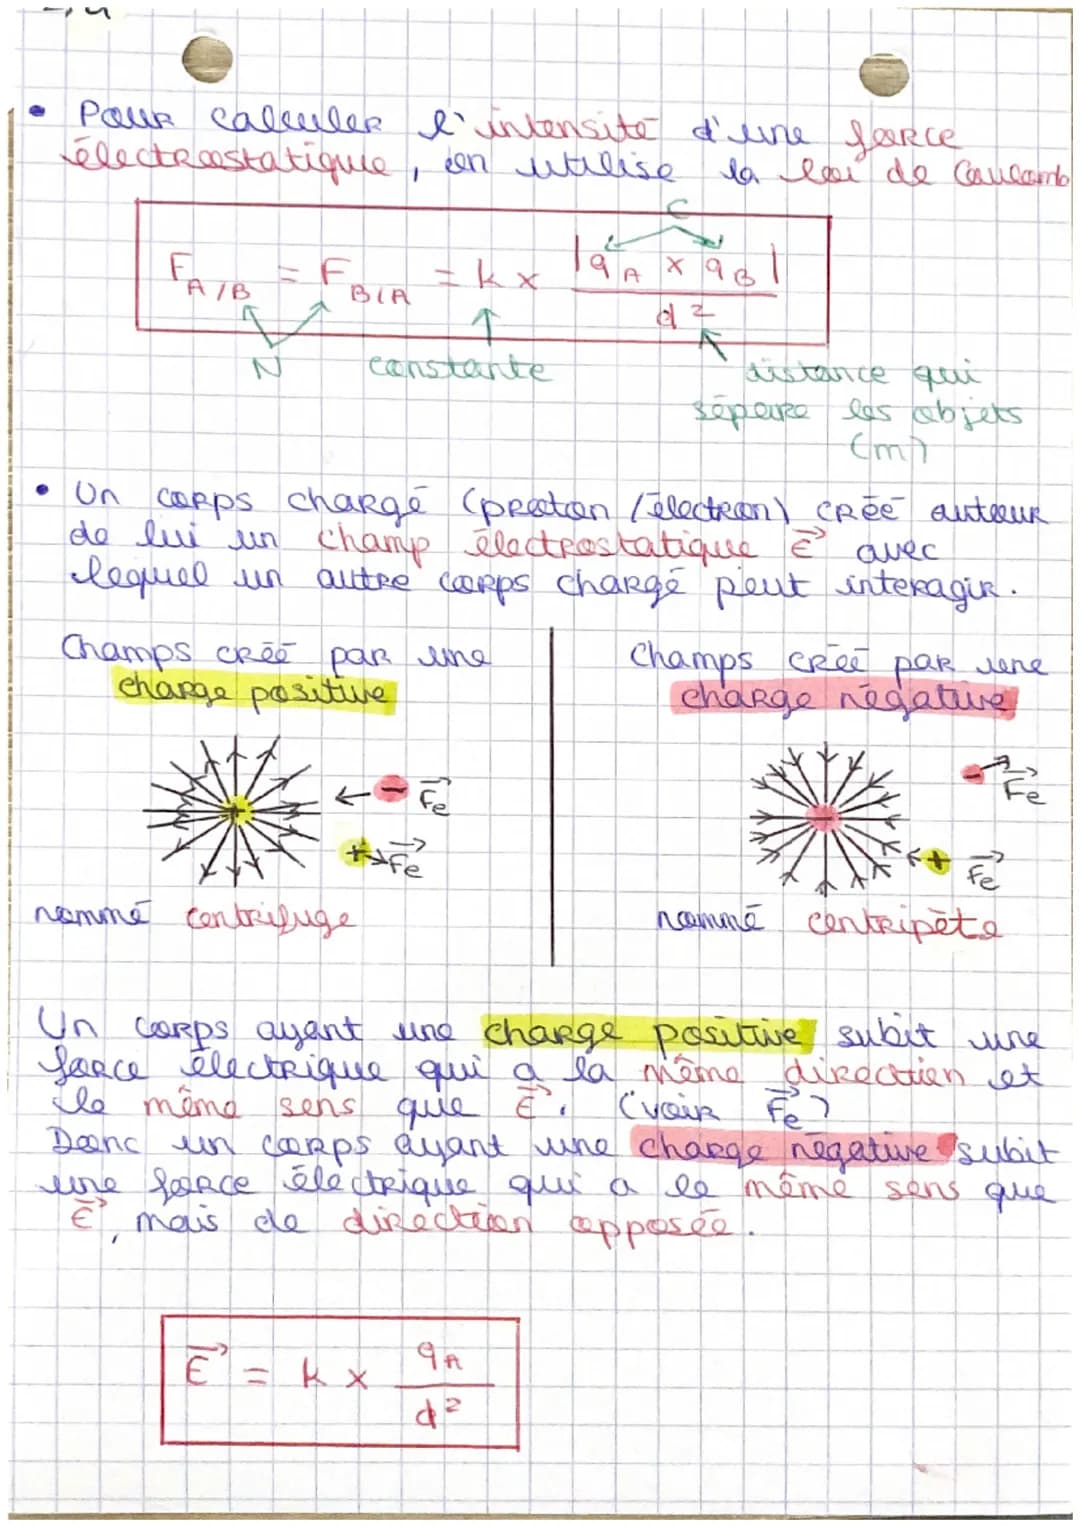 • Pour calculer l'intensité d'une force
électrostatique, on utilise la loi de Coulomb
C
F A/B = F B/A = k x |q A x q B| / d²
N constante distance qui
sépare les objets
(m)
• Un corps chargé (proton / électron) créé autour
de lui un champ électrostatique E→ avec
lequel un autre corps chargé peut interagir.
Champs créé par une
charge positive
+ - Fe→
+ Fe→
nommé centrifuge
Champs créé par une
charge négative
- - Fe→
+ Fe→
nommé centripète
Un corps ayant une charge positive subit une
force électrique qui a la même direction et
le même sens que E→. (voir Fe→)
Donc un corps ayant une charge négative subit
une force électrique qui a le même sens que
E→, mais de direction opposée.
E→ = k x q A / d²